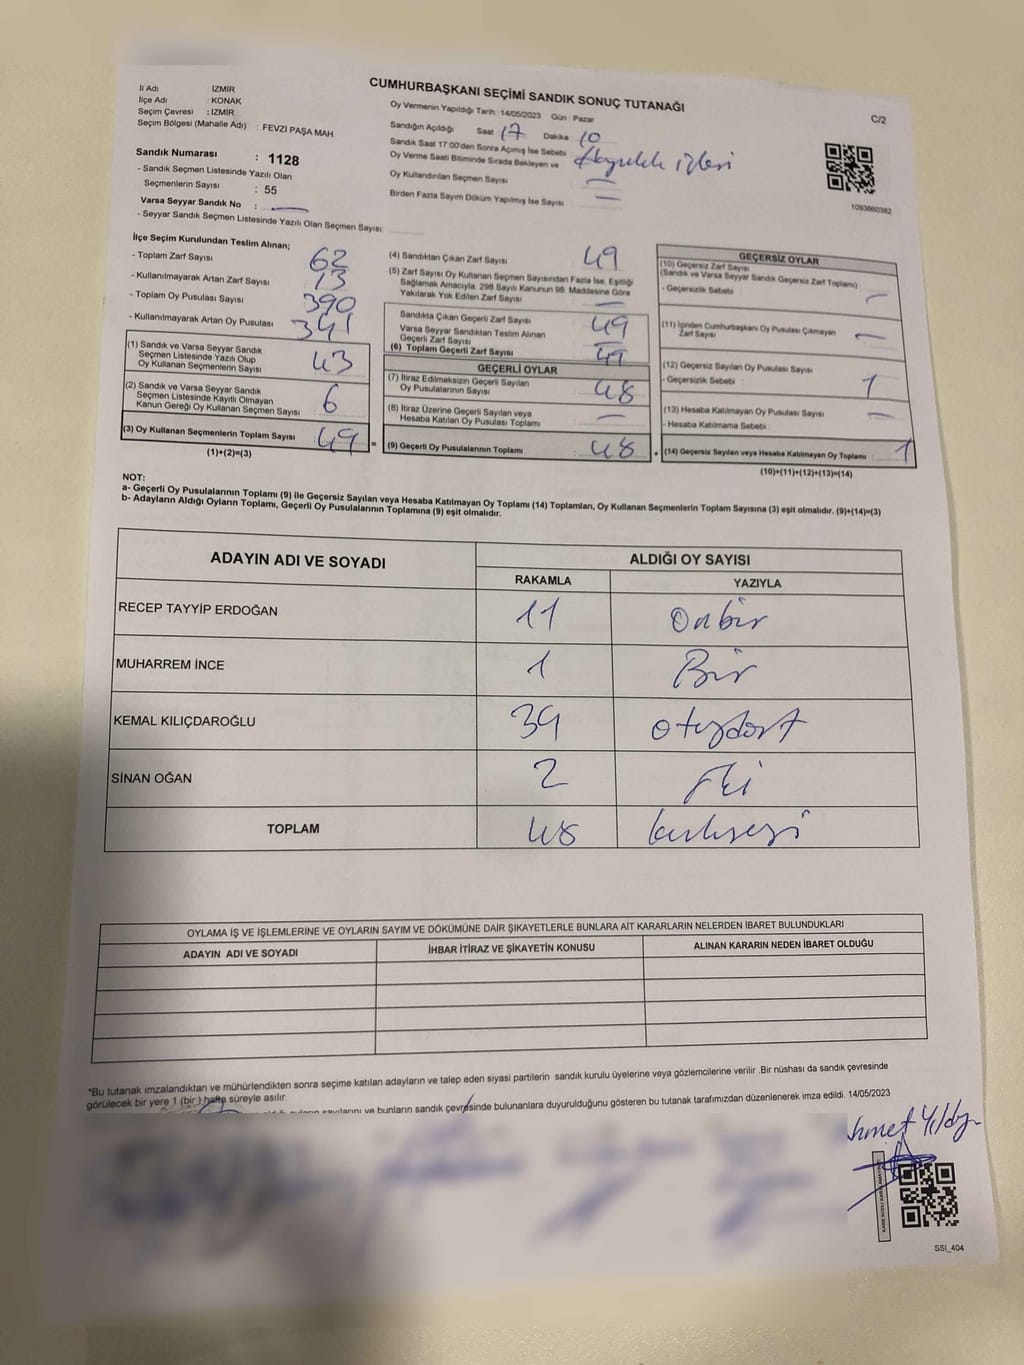 CUMHURBAŞKANI SEÇİMİ SANDIK SONUÇ TUTANAĞI
C/2
İl Adı : İZMİR
İlçe Adı : KONAK
Seçim Çevresi : İZMİR
Seçim Bölgesi (Mahalle Adı) : FEVZİ PAŞA MAH.
Sandık Numarası : 1128
- Sandık Seçmen Listesinde Yazılı Olan
Seçmenlerin Sayısı : 55
Varsa Seyyar Sandık No : —
- Seyyar Sandık Seçmen Listesinde Yazılı Olan Seçmen Sayısı:
Oy Vermenin Yapıldığı Tarih : 14/05/2023 Gün : Pazar
Sandığın Açıldığı Saat 17 Dakika : 10
Sandık Saat 17:00'den Sonra Açımış İse Sebebi :
Oy Verme Saati Bitiminde Sırada Bekleyen ve
Oy Kullandırılan Seçmen Sayısı —
Birden Fazla Sayım Döküm Yapılmış İse Sayısı —
1093860382
İlçe Seçim Kurulundan Teslim Alınan;
- Toplam Zarf Sayısı : 62
- Kullanılmayarak Artan Zarf Sayısı : 13
- Toplam Oy Pusulası Sayısı : 390
- Kullanılmayarak Artan Oy Pusulası : 341
(1) Sandık ve Varsa Seyyar Sandık
Seçmen Listesinde Yazılı Olup
Oy Kullanan Seçmenlerin Sayısı : 43
(2) Sandık ve Varsa Seyyar Sandık
Seçmen Listesinde Kayıtlı Olmayan
Kanun Gereği Oy Kullanan Seçmen Sayısı : 6
(3) Oy Kullanan Seçmenlerin Toplam Sayısı : 49 =
(1)+(2)=(3)
(4) Sandıktan Çıkan Zarf Sayısı : 49
(5) Zarf Sayısı Oy Kullanan Seçmen Sayısından Fazla İse, Eşitliği
Sağlamak Amacıyla, 298 Sayılı Kanunun 98. Maddesine Göre
Yakılarak Yok Edilen Zarf Sayısı : —
Sandıkta Çıkan Geçerli Zarf Sayısı : 49
Varsa Seyyar Sandıktan Teslim Alınan
Geçerli Zarf Sayısı : —
(6) Toplam Geçerli Zarf Sayısı : 49
GEÇERLİ OYLAR
(7) İtiraz Edilmeksizin Geçerli Sayılan
Oy Pusulalarının Sayısı : 48
(8) İtiraz Üzerine Geçerli Sayılan veya
Hesaba Katılan Oy Pusulası Toplamı : —
(9) Geçerli Oy Pusulalarının Toplamı : 48 +
GEÇERSİZ OYLAR
(10) Geçersiz Zarf Sayısı
(Sandık ve Varsa Seyyar Sandık Geçersiz Zarf Toplamı) —
- Geçersizlik Sebebi :
(11) İçinden Cumhurbaşkanı Oy Pusulası Çıkmayan
Zarf Sayısı : —
(12) Geçersiz Sayılan Oy Pusulası Sayısı : 1
- Geçersizlik Sebebi :
(13) Hesaba Katılmayan Oy Pusulası Sayısı : —
- Hesaba Katılmama Sebebi :
(14) Geçersiz Sayılan veya Hesaba Katılmayan Oy Toplamı : 1
(10)+(11)+(12)+(13)=(14)
NOT:
a- Geçerli Oy Pusulalarının Toplamı (9) ile Geçersiz Sayılan veya Hesaba Katılmayan Oy Toplamı (14) Toplamları, Oy Kullanan Seçmenlerin Toplam Sayısına (3) eşit olmalıdır. (9)+(14)=(3)
b- Adayların Aldığı Oyların Toplamı, Geçerli Oy Pusulalarının Toplamına (9) eşit olmalıdır.
ADAYIN ADI VE SOYADI ALDIĞI OY SAYISI
RAKAMLA YAZIYLA
RECEP TAYYİP ERDOĞAN 11 Onbir
MUHARREM İNCE 1 Bir
KEMAL KILIÇDAROĞLU 34 otuzdört
SİNAN OĞAN 2 İki
TOPLAM 48 kırksekiz
OYLAMA İŞ VE İŞLEMLERİNE VE OYLARIN SAYIM VE DÖKÜMÜNE DAİR ŞİKAYETLERLE BUNLARA AİT KARARLARIN NELERDEN İBARET BULUNDUKLARI
ADAYIN ADI VE SOYADI İHBAR İTİRAZ VE ŞİKAYETİN KONUSU ALINAN KARARIN NEDEN İBARET OLDUĞU
*Bu tutanak imzalandıktan ve mühürlendikten sonra seçime katılan adayların ve talep eden siyasi partilerin sandık kurulu üyelerine veya gözlemcilerine verilir .Bir nüshası da sandık çevresinde
görülecek bir yere 1 (bir ) hafta süreyle asılır.
sayılarını ve bunların sandık çevresinde bulunanlara duyurulduğunu gösteren bu tutanak tarafımızdan düzenlenerek imza edildi. 14/05/2023
SSI_404